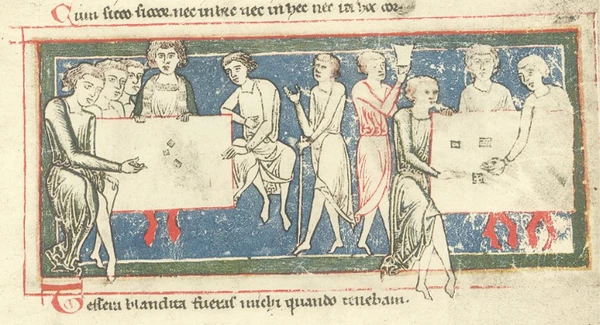 Cum sicco siccor. nec in hec nec in hec nec cor.
Tessera blandita fueras michi quando tenebam.